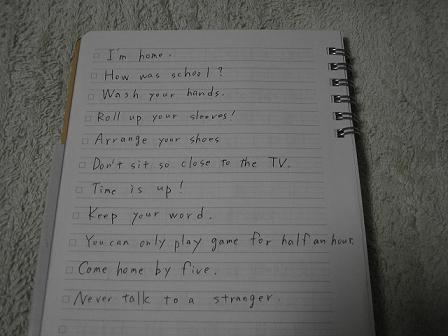 I'm home.
How was school?
Wash your hands.
Roll up your sleeves!
Arrange your shoes
Don't sit so close to the TV.
Time is up!
Keep your word.
You can only play game for half an hour.
Come home by five.
Never talk to a stranger.